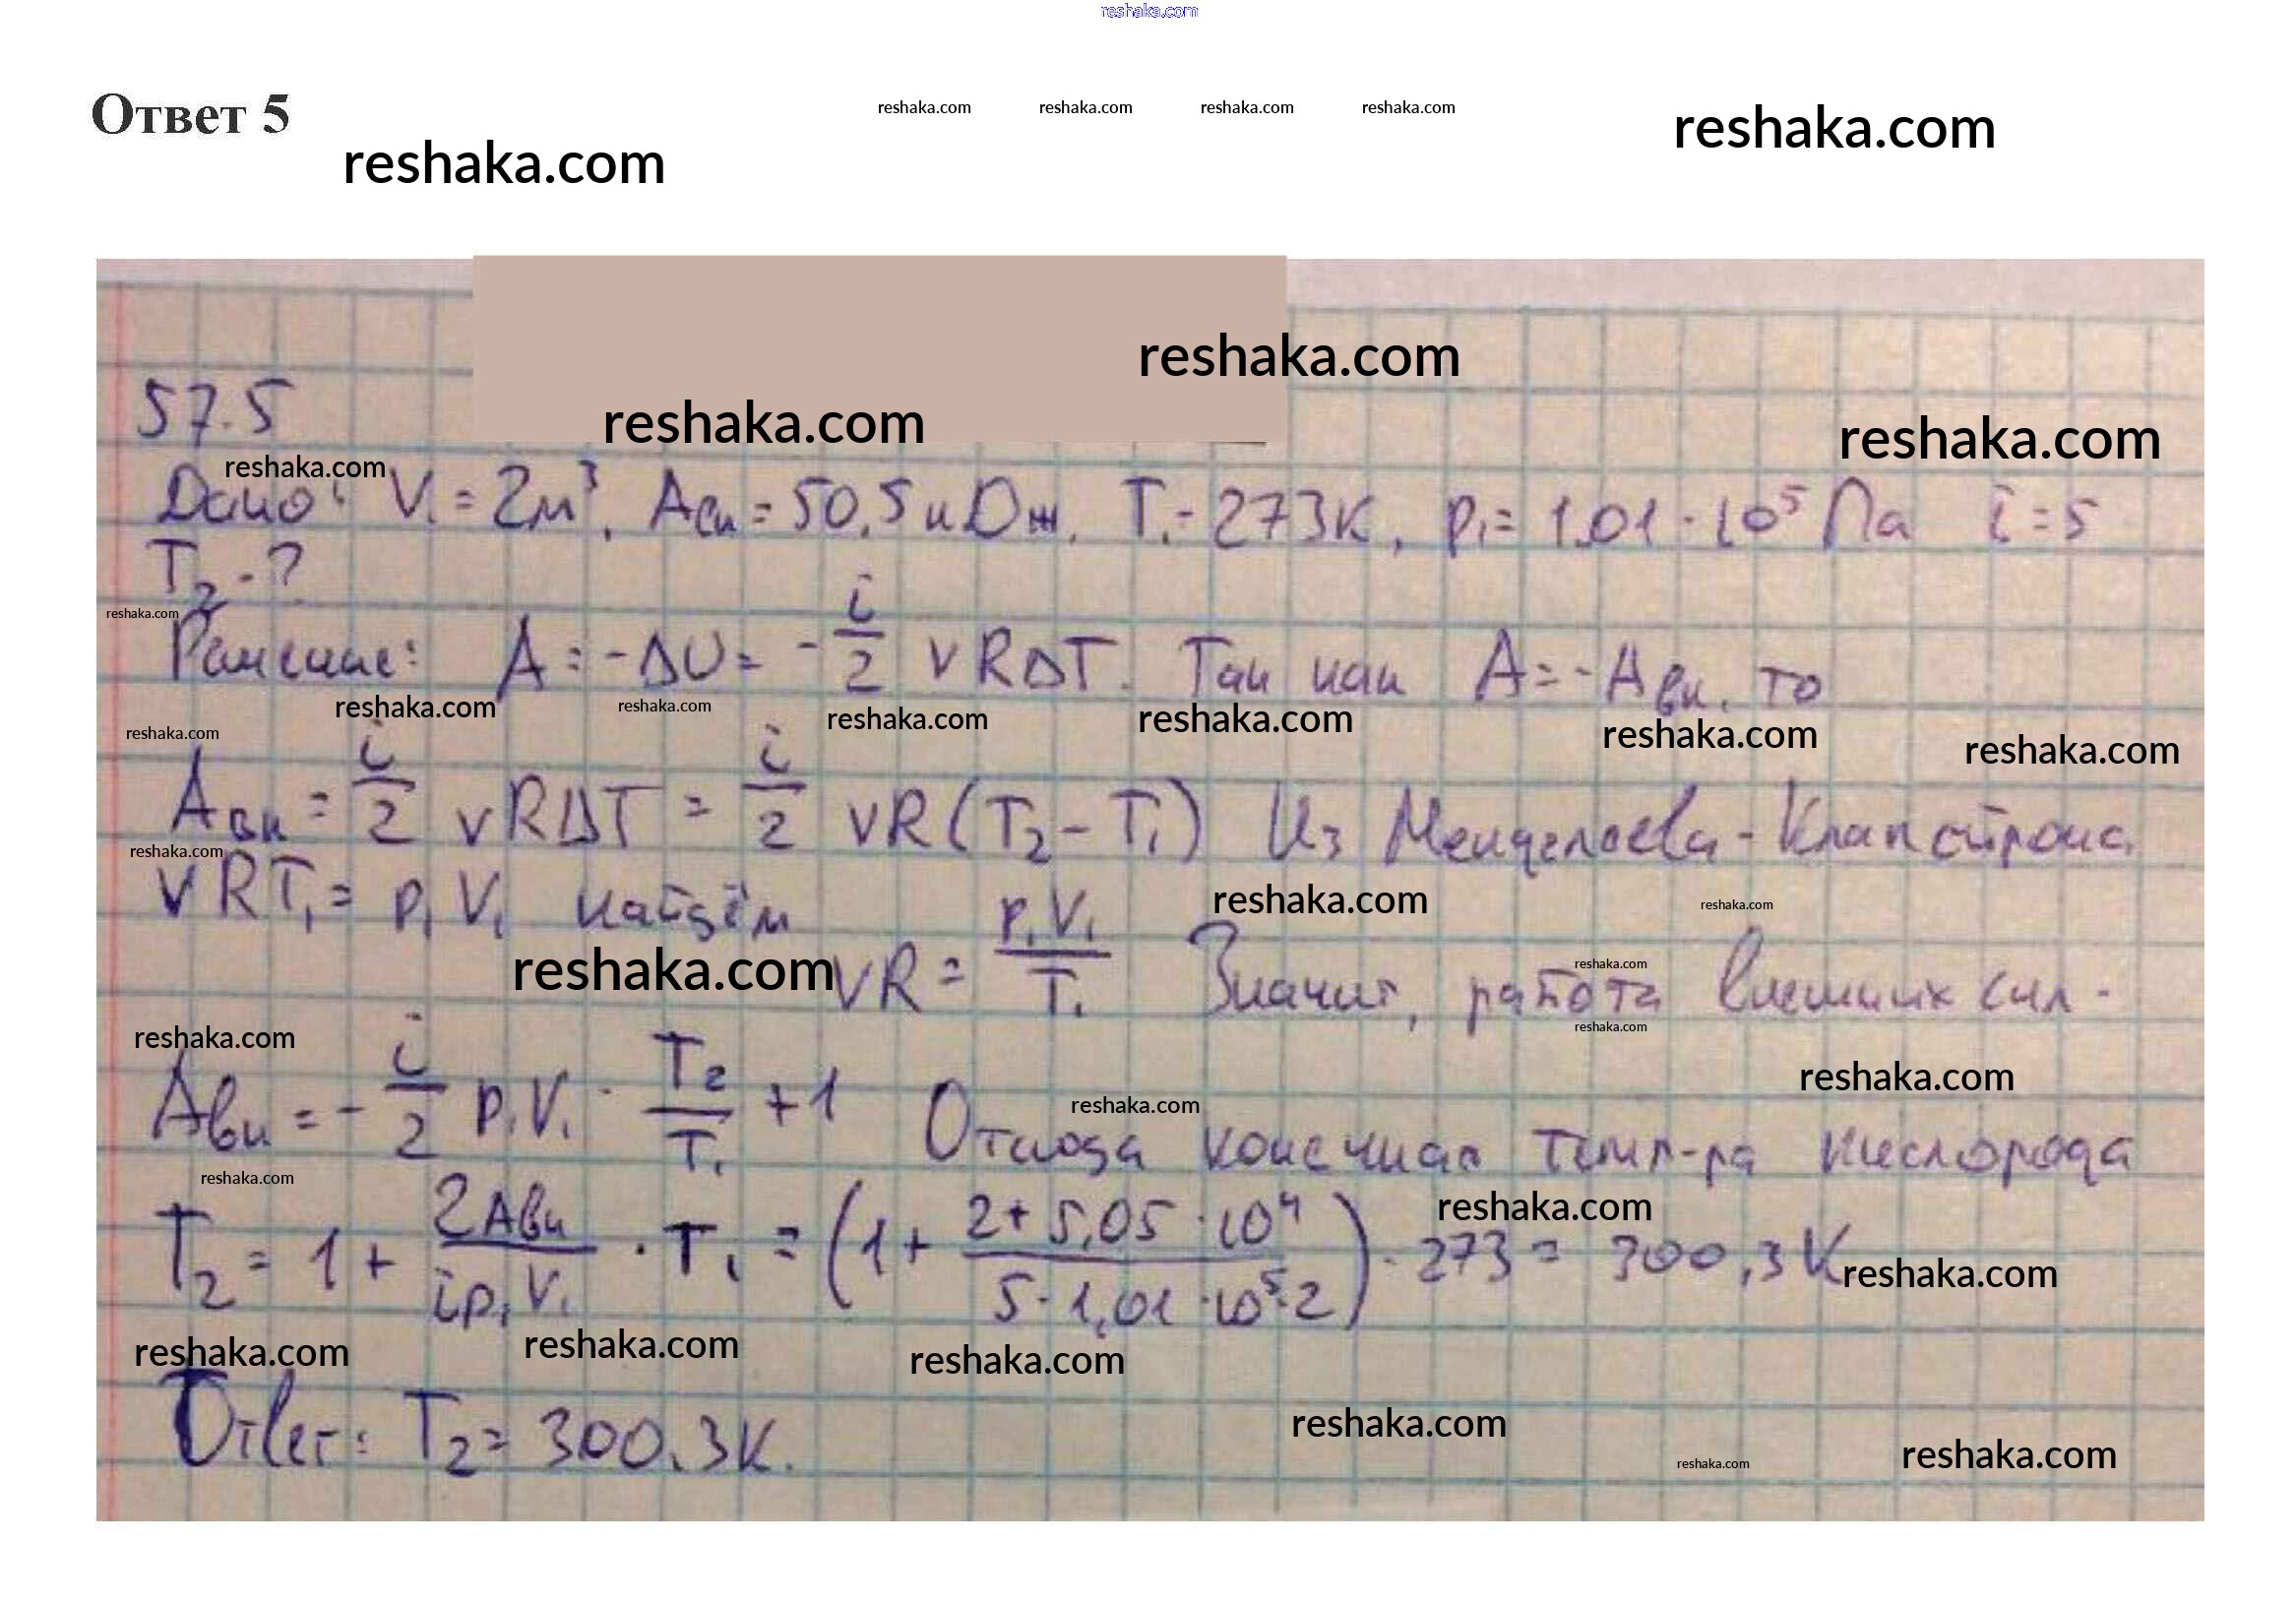 reshaka.com
Ответ 5
reshaka.com reshaka.com reshaka.com reshaka.com
reshaka.com
reshaka.com
reshaka.com
57.5
reshaka.com
reshaka.com
reshaka.com
Дано: V₁ = 2м³, Aвн = 50,5 кДж, T₁ = 273К, p₁ = 1,01 · 10⁵ Па i = 5
T₂ - ?
reshaka.com
Решение: A = -ΔU = - i/2 νRΔT. Так как A = -Aвн, то
reshaka.com reshaka.com reshaka.com reshaka.com reshaka.com reshaka.com
reshaka.com
Aвн = i/2 νRΔT = i/2 νR(T₂ - T₁) Из Менделеева - Клапейрона
reshaka.com
νRT₁ = p₁V₁ найдём νR = p₁V₁/T₁ Значит, работа внешних сил -
reshaka.com reshaka.com
reshaka.com reshaka.com
reshaka.com reshaka.com
reshaka.com
Aвн = - i/2 p₁V₁ · T₂/T₁ + 1 Отсюда конечная темп-ра кислорода
reshaka.com
reshaka.com reshaka.com
T₂ = 1 + 2Aвн/ip₁V₁ · T₁ = (1 + 2+5,05·10⁴/5·1,01·10⁵·2) · 273 = 300,3К
reshaka.com
reshaka.com reshaka.com reshaka.com
Ответ: T₂ = 300,3К.
reshaka.com
reshaka.com reshaka.com